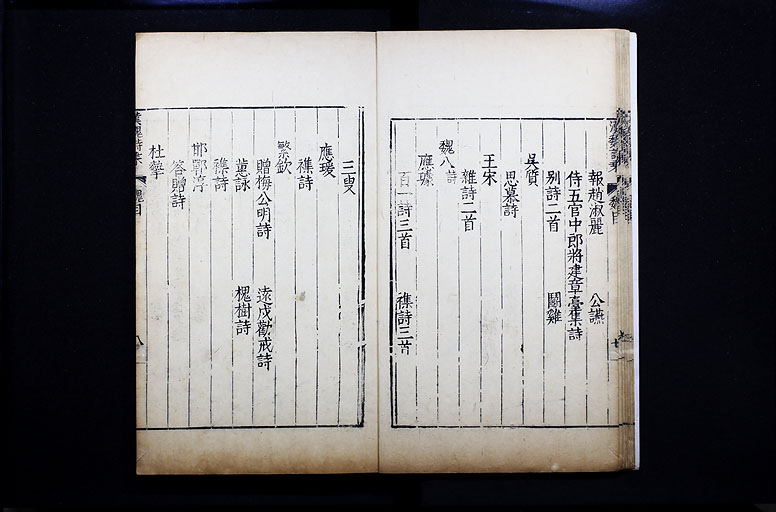 報趙淑麗 公讌
侍五官中郎將建章臺集詩
别詩二首 鬭雞
吳質
思慕詩
王宋
雜詩二首
魏八
應璩
百一詩三首 襍詩三首
三叟
應瑗
襍詩
繁欽
贈梅公明詩 遠戍勸戒詩
蕙詠 槐樹詩
襍詩
邯鄲淳
答贈詩
杜摯
漢魏詩
魏目
八